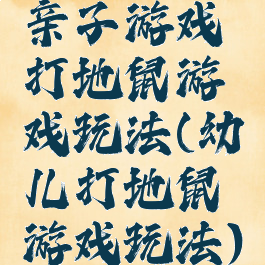 亲子游戏
打地鼠游
戏玩法(幼
儿打地鼠
游戏玩法)